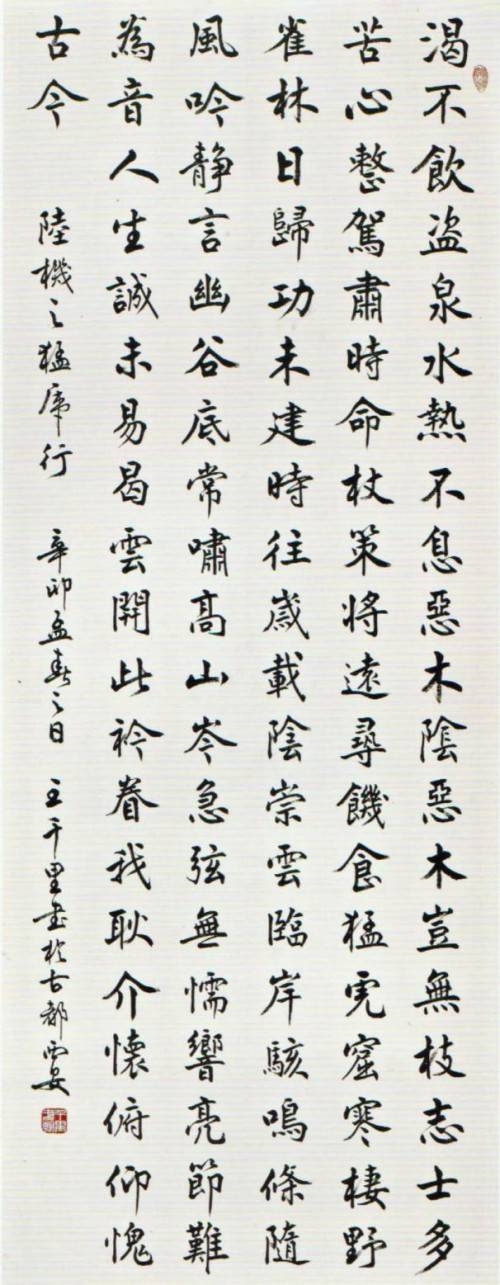 渴不飲盗泉水熱不息惡木陰惡木豈無枝志士多
苦心整駕肅時命杖策将遠尋饑食猛虎窟寒棲野
雀林日歸功未建時往歲載陰崇雲臨岸駭鳴條隨
風吟静言幽谷底常嘯高山岑急弦無懦響亮節難
為音人生誠未易曷雲開此衿眷我耿介懷俯仰愧
古今 陸機之猛虎行 辛卯孟春之日 王千里書於古都西安